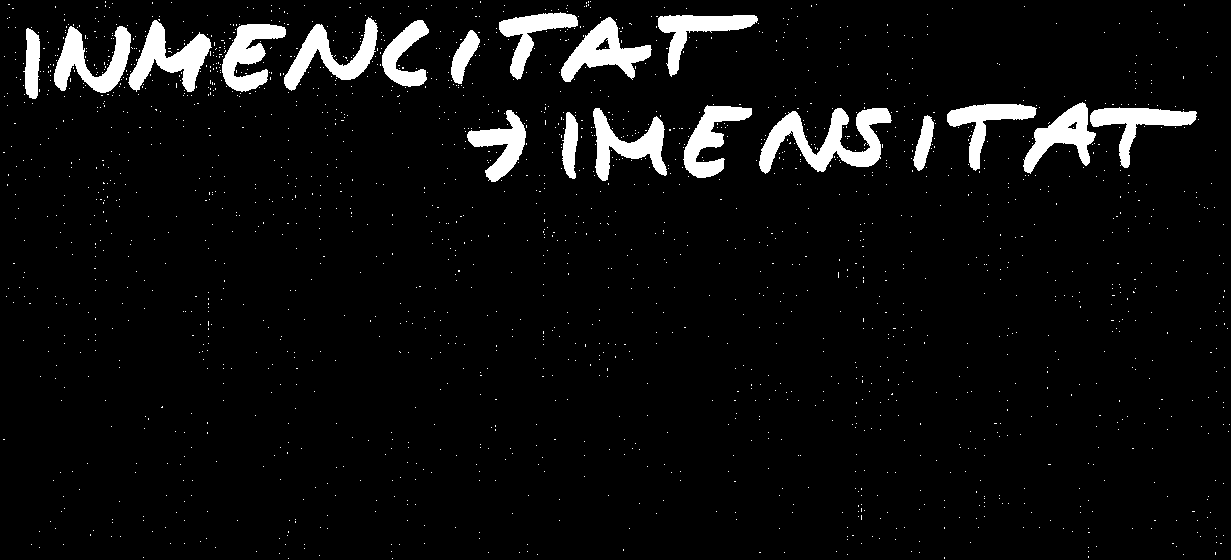 INMENCITAT
→ IMENSITAT